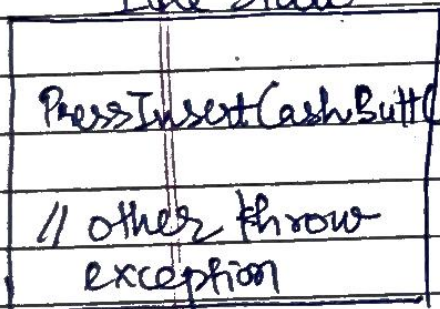 PressInsertCashButt(
// other throw
exception